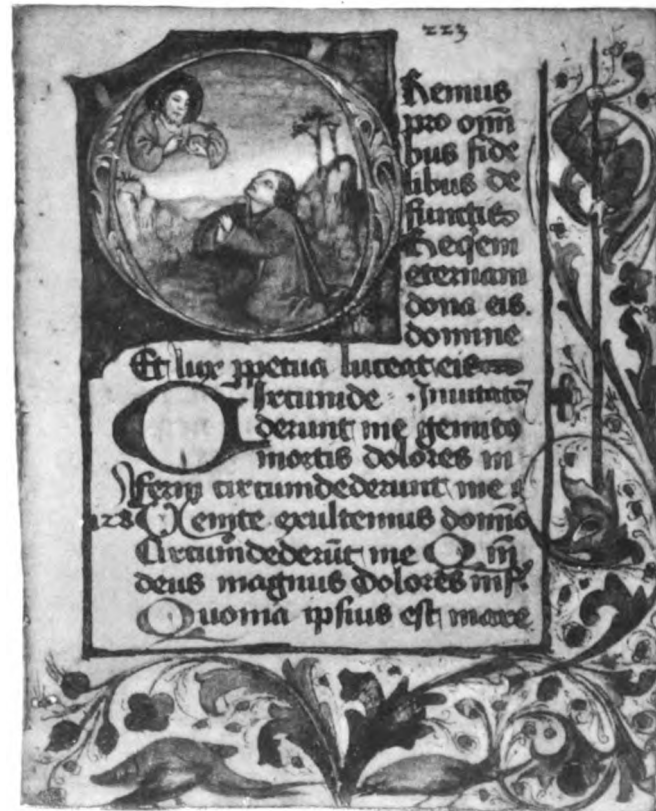 223
Oremus
pro om̄
bus fide
libus de
functis
Reqem
eternam
dona eis.
domine
Et lux ppetua luceat eis
Circumde Inuitatoꝝ
derunt me gemitꝰ
mortis dolores in
ferni circumdederunt me
128 Uenite exultemus domino
Circumdederūt me Qm̄
deus magnus Dolores inf.
Quonia ipsius est mare